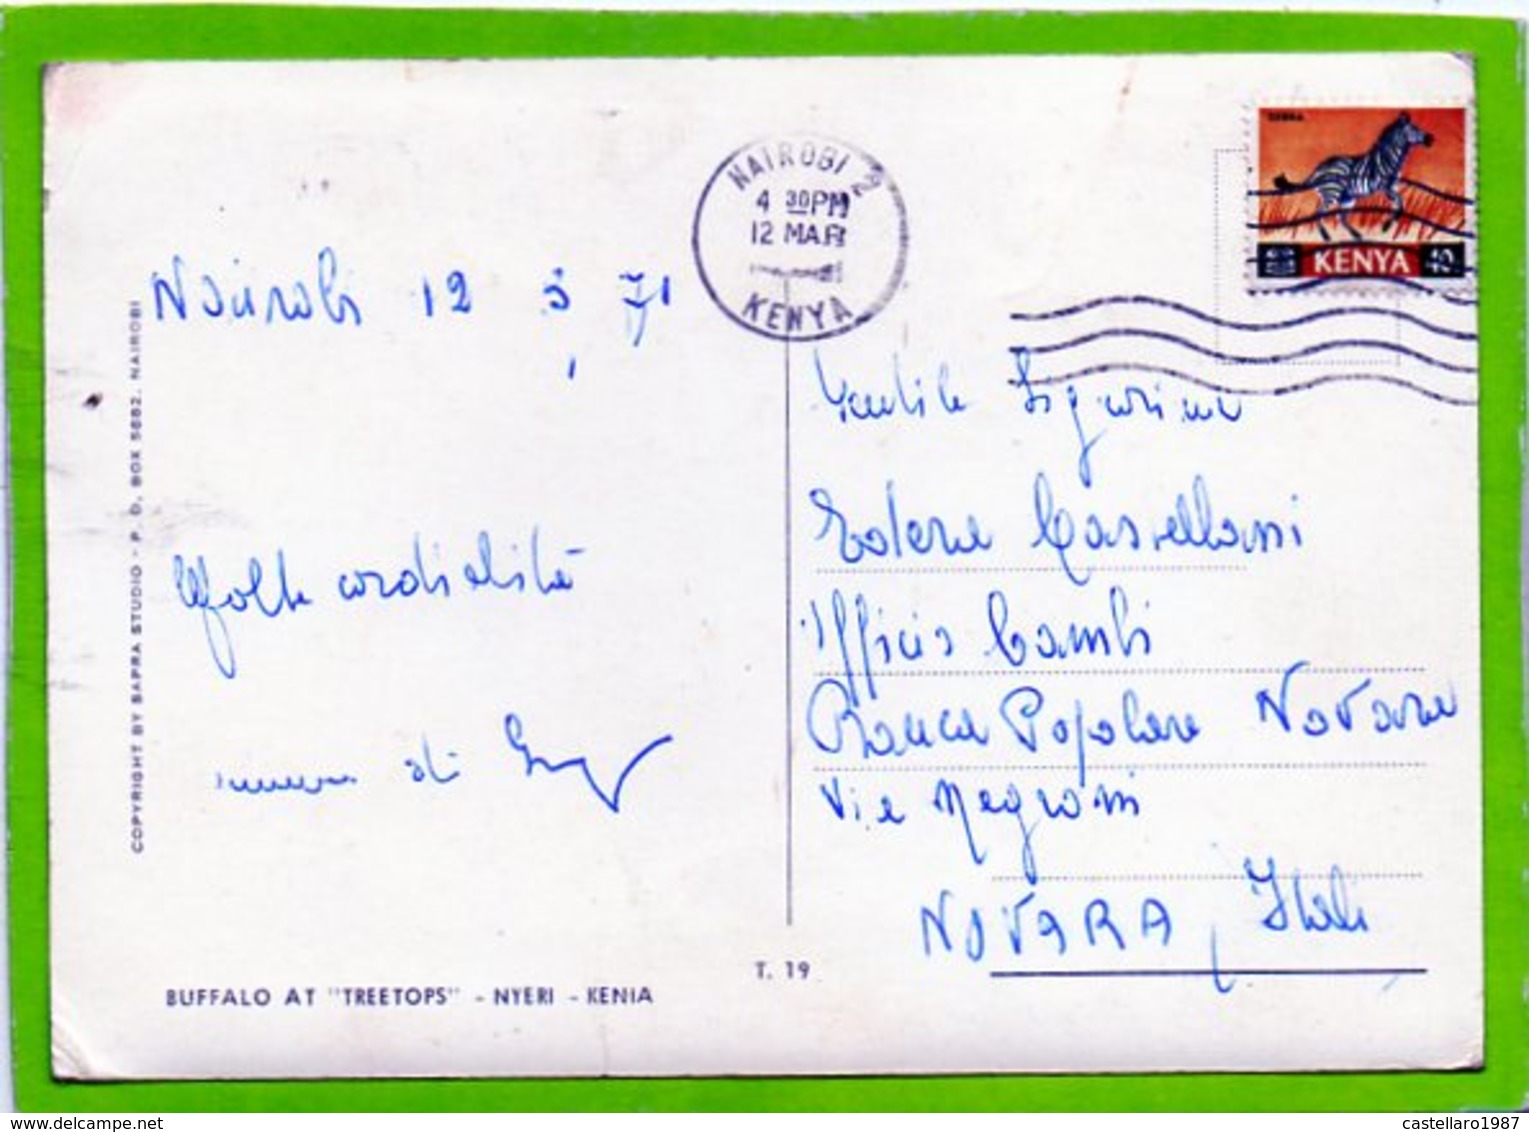 NAIROBI 2
4 30PM
12 MAR
KENYA
ZEBRA
KENYA 40
Nairobi 12 3 71
Molte cordialità
di
Gentile Signorina
Castellani
Ufficio Cambi
Banca Popolare Novara
Via Negroni
NOVARA, Itali
COPYRIGHT BY SAPRA STUDIO - P. O. BOX 5882. NAIROBI
T. 19
BUFFALO AT "TREETOPS" - NYERI - KENIA
delcampe.net
castellaro1987